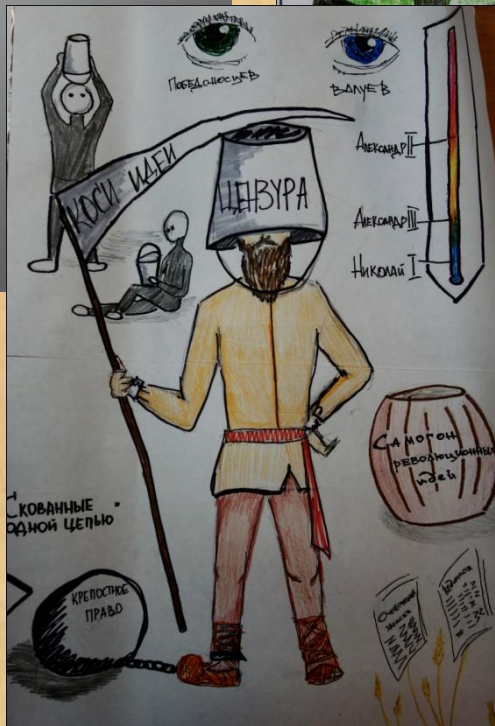 ПОБЕДОНОСЦЕВ
ВАЛУЕВ
АЛЕКСАНДР II
АЛЕКСАНДР III
НИКОЛАЙ I
КОСИ ИДЕИ
ЦЕНЗУРА
САМОГОН
РЕВОЛЮЦИОННЫХ
ИДЕЙ
СКОВАННЫЕ
ОДНОЙ ЦЕПЬЮ"
КРЕПОСТНОЕ
ПРАВО